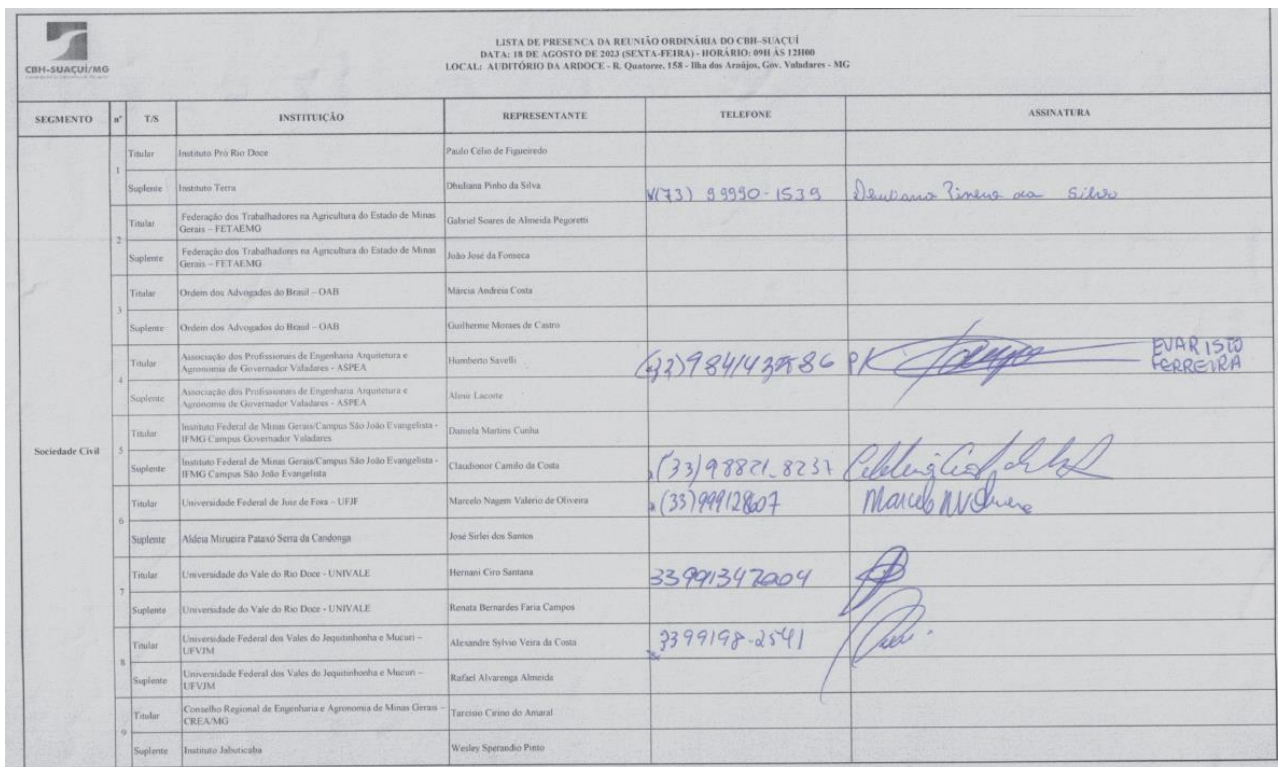 CBH-SUAÇUÍ/MG
LISTA DE PRESENÇA DA REUNIÃO ORDINÁRIA DO CBH-SUAÇUÍ
DATA: 18 DE AGOSTO DE 2023 (SEXTA-FEIRA) - HORÁRIO: 09H ÀS 12H00
LOCAL: AUDITÓRIO DA ARDOCE - R. Quatorze, 158 - Ilha dos Araújos, Gov. Valadares - MG
SEGMENTO nº T/S INSTITUIÇÃO REPRESENTANTE TELEFONE ASSINATURA
Sociedade Civil
1
Titular Instituto Pró Rio Doce Paulo Célio de Figueiredo
Suplente Instituto Terra Dhuliana Pinho da Silva (73) 99990-1539 da Silva
2
Titular Federação dos Trabalhadores na Agricultura do Estado de Minas
Gerais – FETAEMG Gabriel Soares de Almeida Pegoretti
Suplente Federação dos Trabalhadores na Agricultura do Estado de Minas
Gerais – FETAEMG João José da Fonseca
3
Titular Ordem dos Advogados do Brasil – OAB Márcia Andreia Costa
Suplente Ordem dos Advogados do Brasil – OAB Guilherme Moraes de Castro
4
Titular Associação dos Profissionais de Engenharia Arquitetura e
Agronomia de Governador Valadares - ASPEA Humberto Savelli EVARISTO
FERREIRA
Suplente Associação dos Profissionais de Engenharia Arquitetura e
Agronomia de Governador Valadares - ASPEA Almir Lacorte
5
Titular Instituto Federal de Minas Gerais/Campus São João Evangelista -
IFMG Campus Governador Valadares Daniela Martins Cunha
Suplente Instituto Federal de Minas Gerais/Campus São João Evangelista -
IFMG Campus São João Evangelista Claudionor Camilo da Costa (33)98821-8237
6
Titular Universidade Federal de Juiz de Fora – UFJF Marcelo Nagem Valério de Oliveira (33)999128607 Marcelo NVOliveira
Suplente Aldeia Mirueira Pataxó Serra da Candonga José Sirlei dos Santos
7
Titular Universidade do Vale do Rio Doce - UNIVALE Hernani Ciro Santana 33991347004
Suplente Universidade do Vale do Rio Doce - UNIVALE Renata Bernardes Faria Campos
8
Titular Universidade Federal dos Vales do Jequitinhonha e Mucuri –
UFVJM Alexandre Sylvio Veira da Costa 3399198-2541
Suplente Universidade Federal dos Vales do Jequitinhonha e Mucuri –
UFVJM Rafael Alvarenga Almeida
9
Titular Conselho Regional de Engenharia e Agronomia de Minas Gerais –
CREA/MG Tarcisio Cirino do Amaral
Suplente Instituto Jabuticaba Wesley Sperandio Pinto